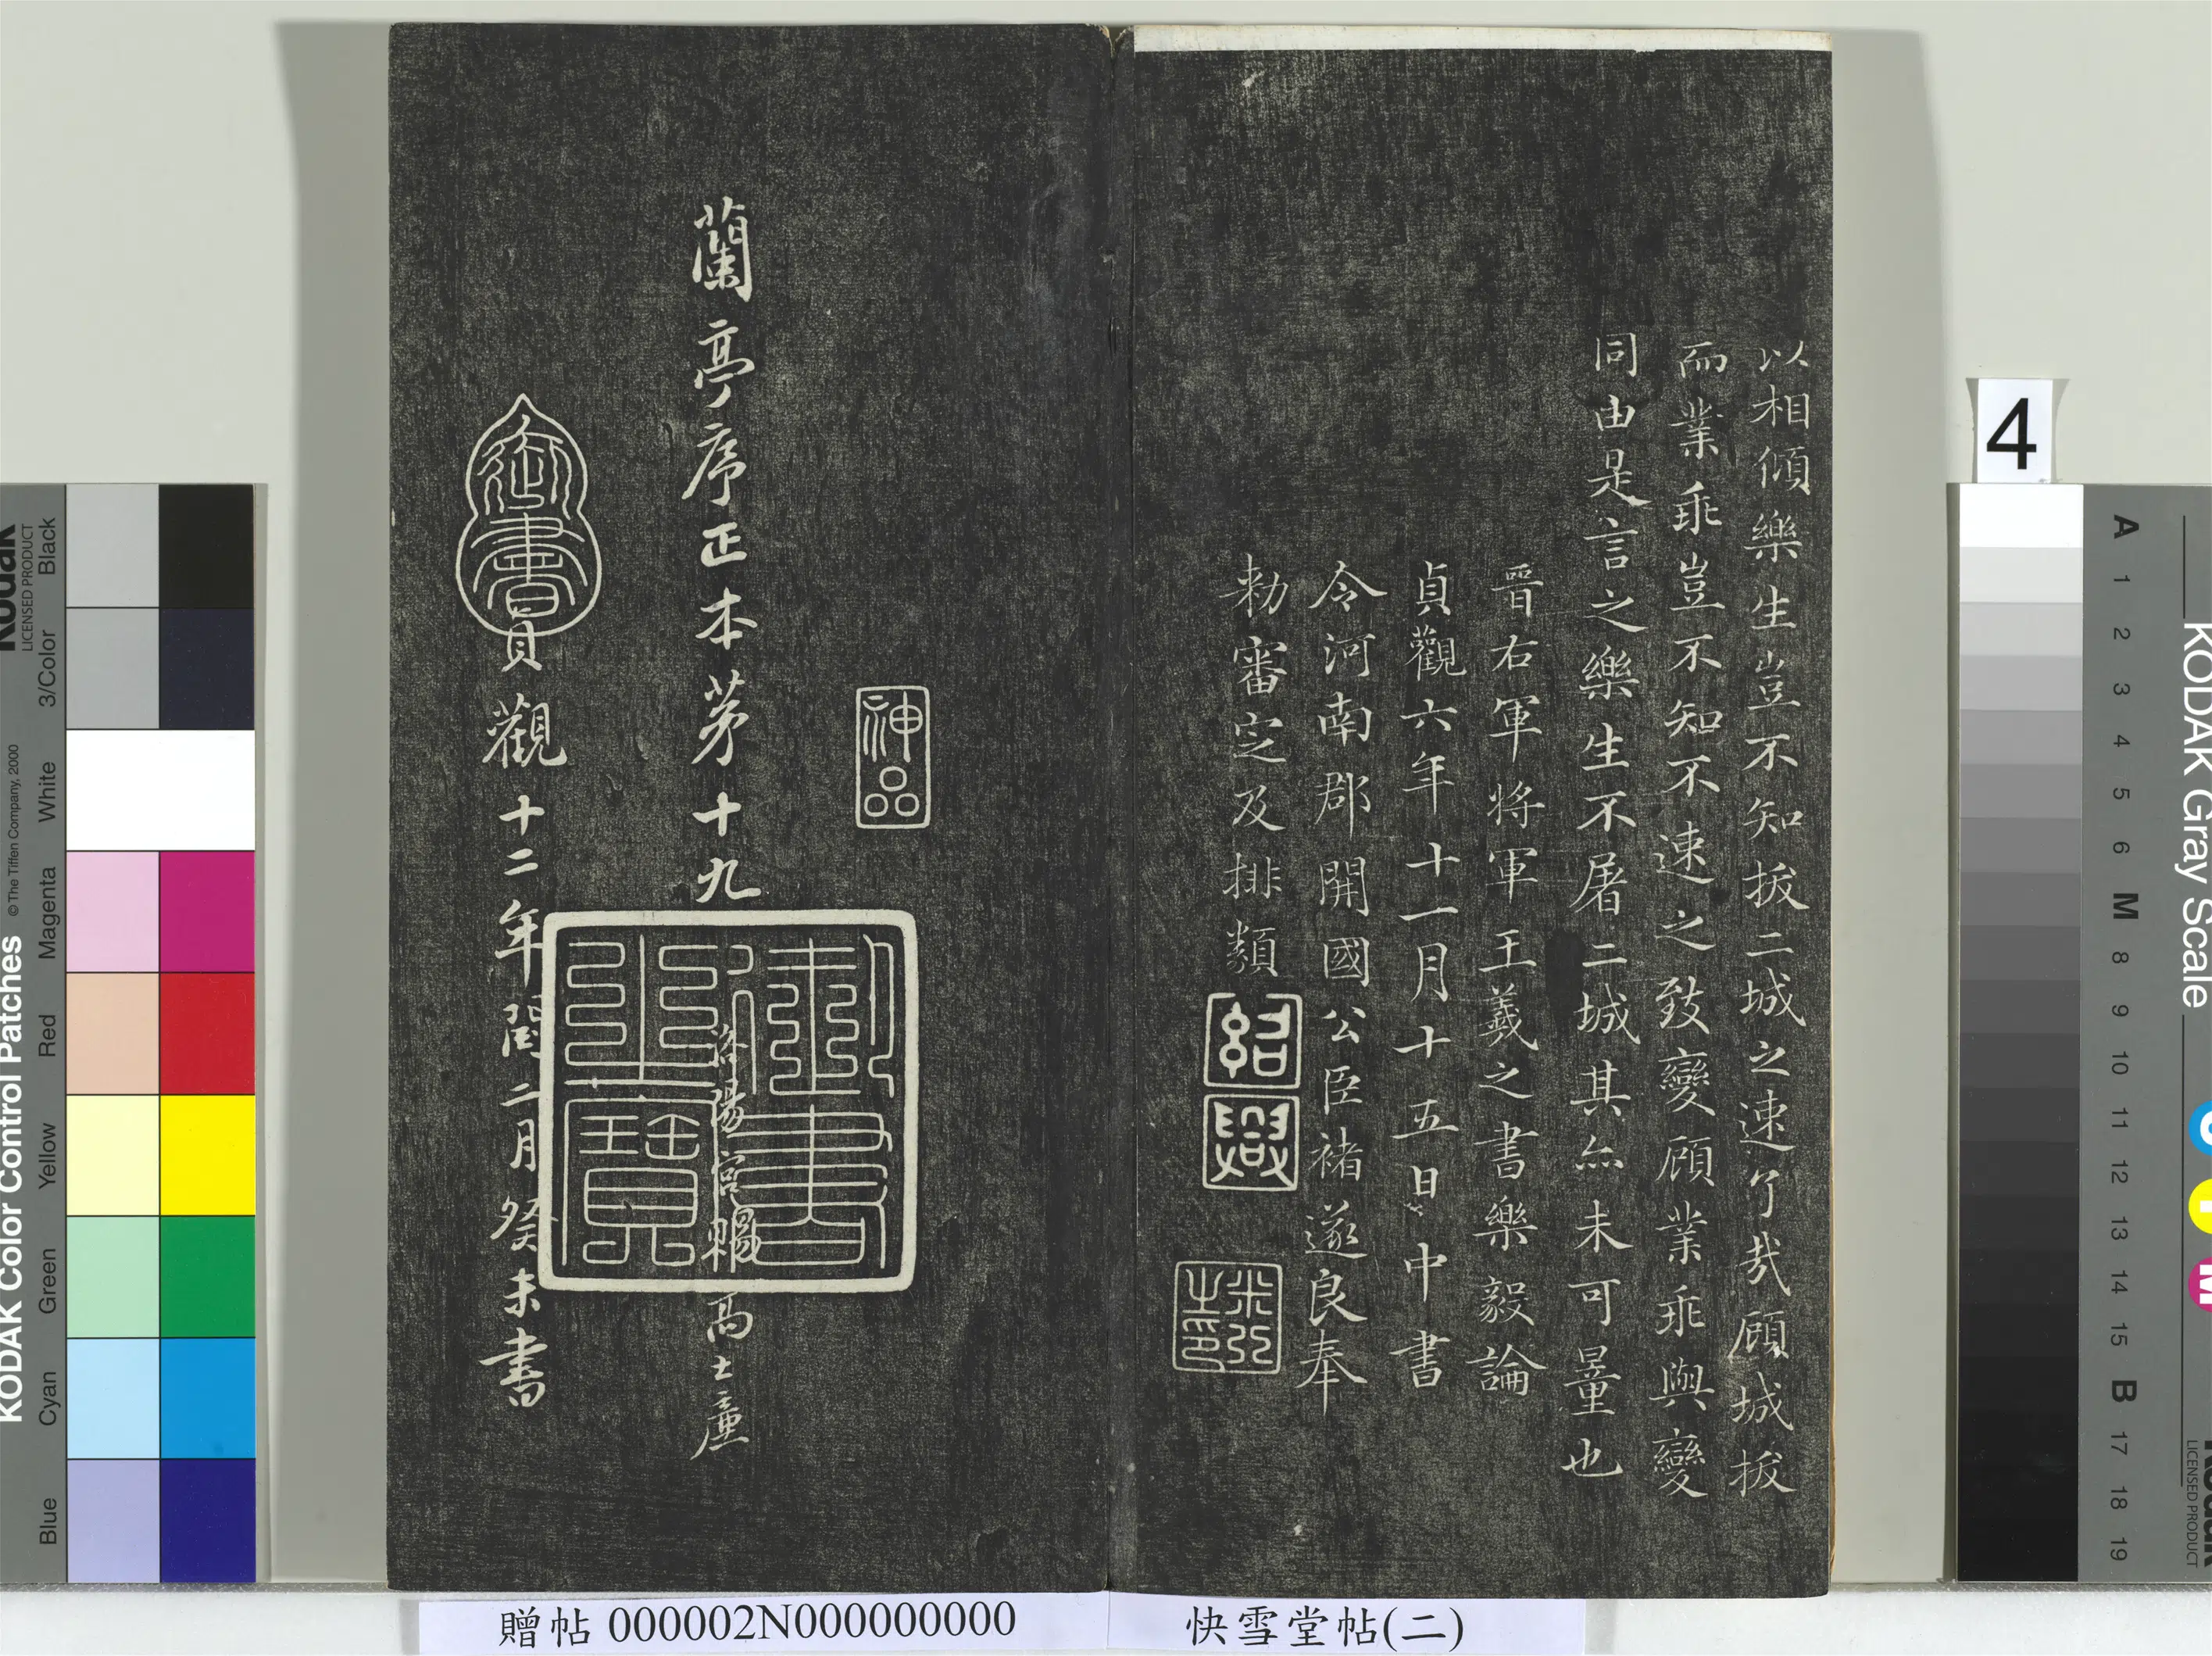 以相傾樂生豈不知拔二城之速了哉顧城拔
而業乖豈不知不速之致變顧業乖與變
同由是言之樂生不屠二城其亦未可量也
晉右軍將軍王羲之書樂毅論
貞觀六年十一月十五日中書
令河南郡開國公臣褚遂良奉
勑審定及排類
紹興
米芾之印
神品
蘭亭序正本苐十九
洛陽宮賜高士廉
御書之寶
御書
貞觀十二年閏二月癸未書
快雪堂帖(二)
贈帖 000002N000000000
4
KODAK Color Control Patches
© The Tiffen Company, 2000
Kodak
LICENSED PRODUCT
Blue
Cyan
Green
Yellow
Red
Magenta
White
3/Color
Black
KODAK Gray Scale
Kodak
LICENSED PRODUCT
C
Y
M
A
1
2
3
4
5
6
M
8
9
10
11
12
13
14
15
B
17
18
19